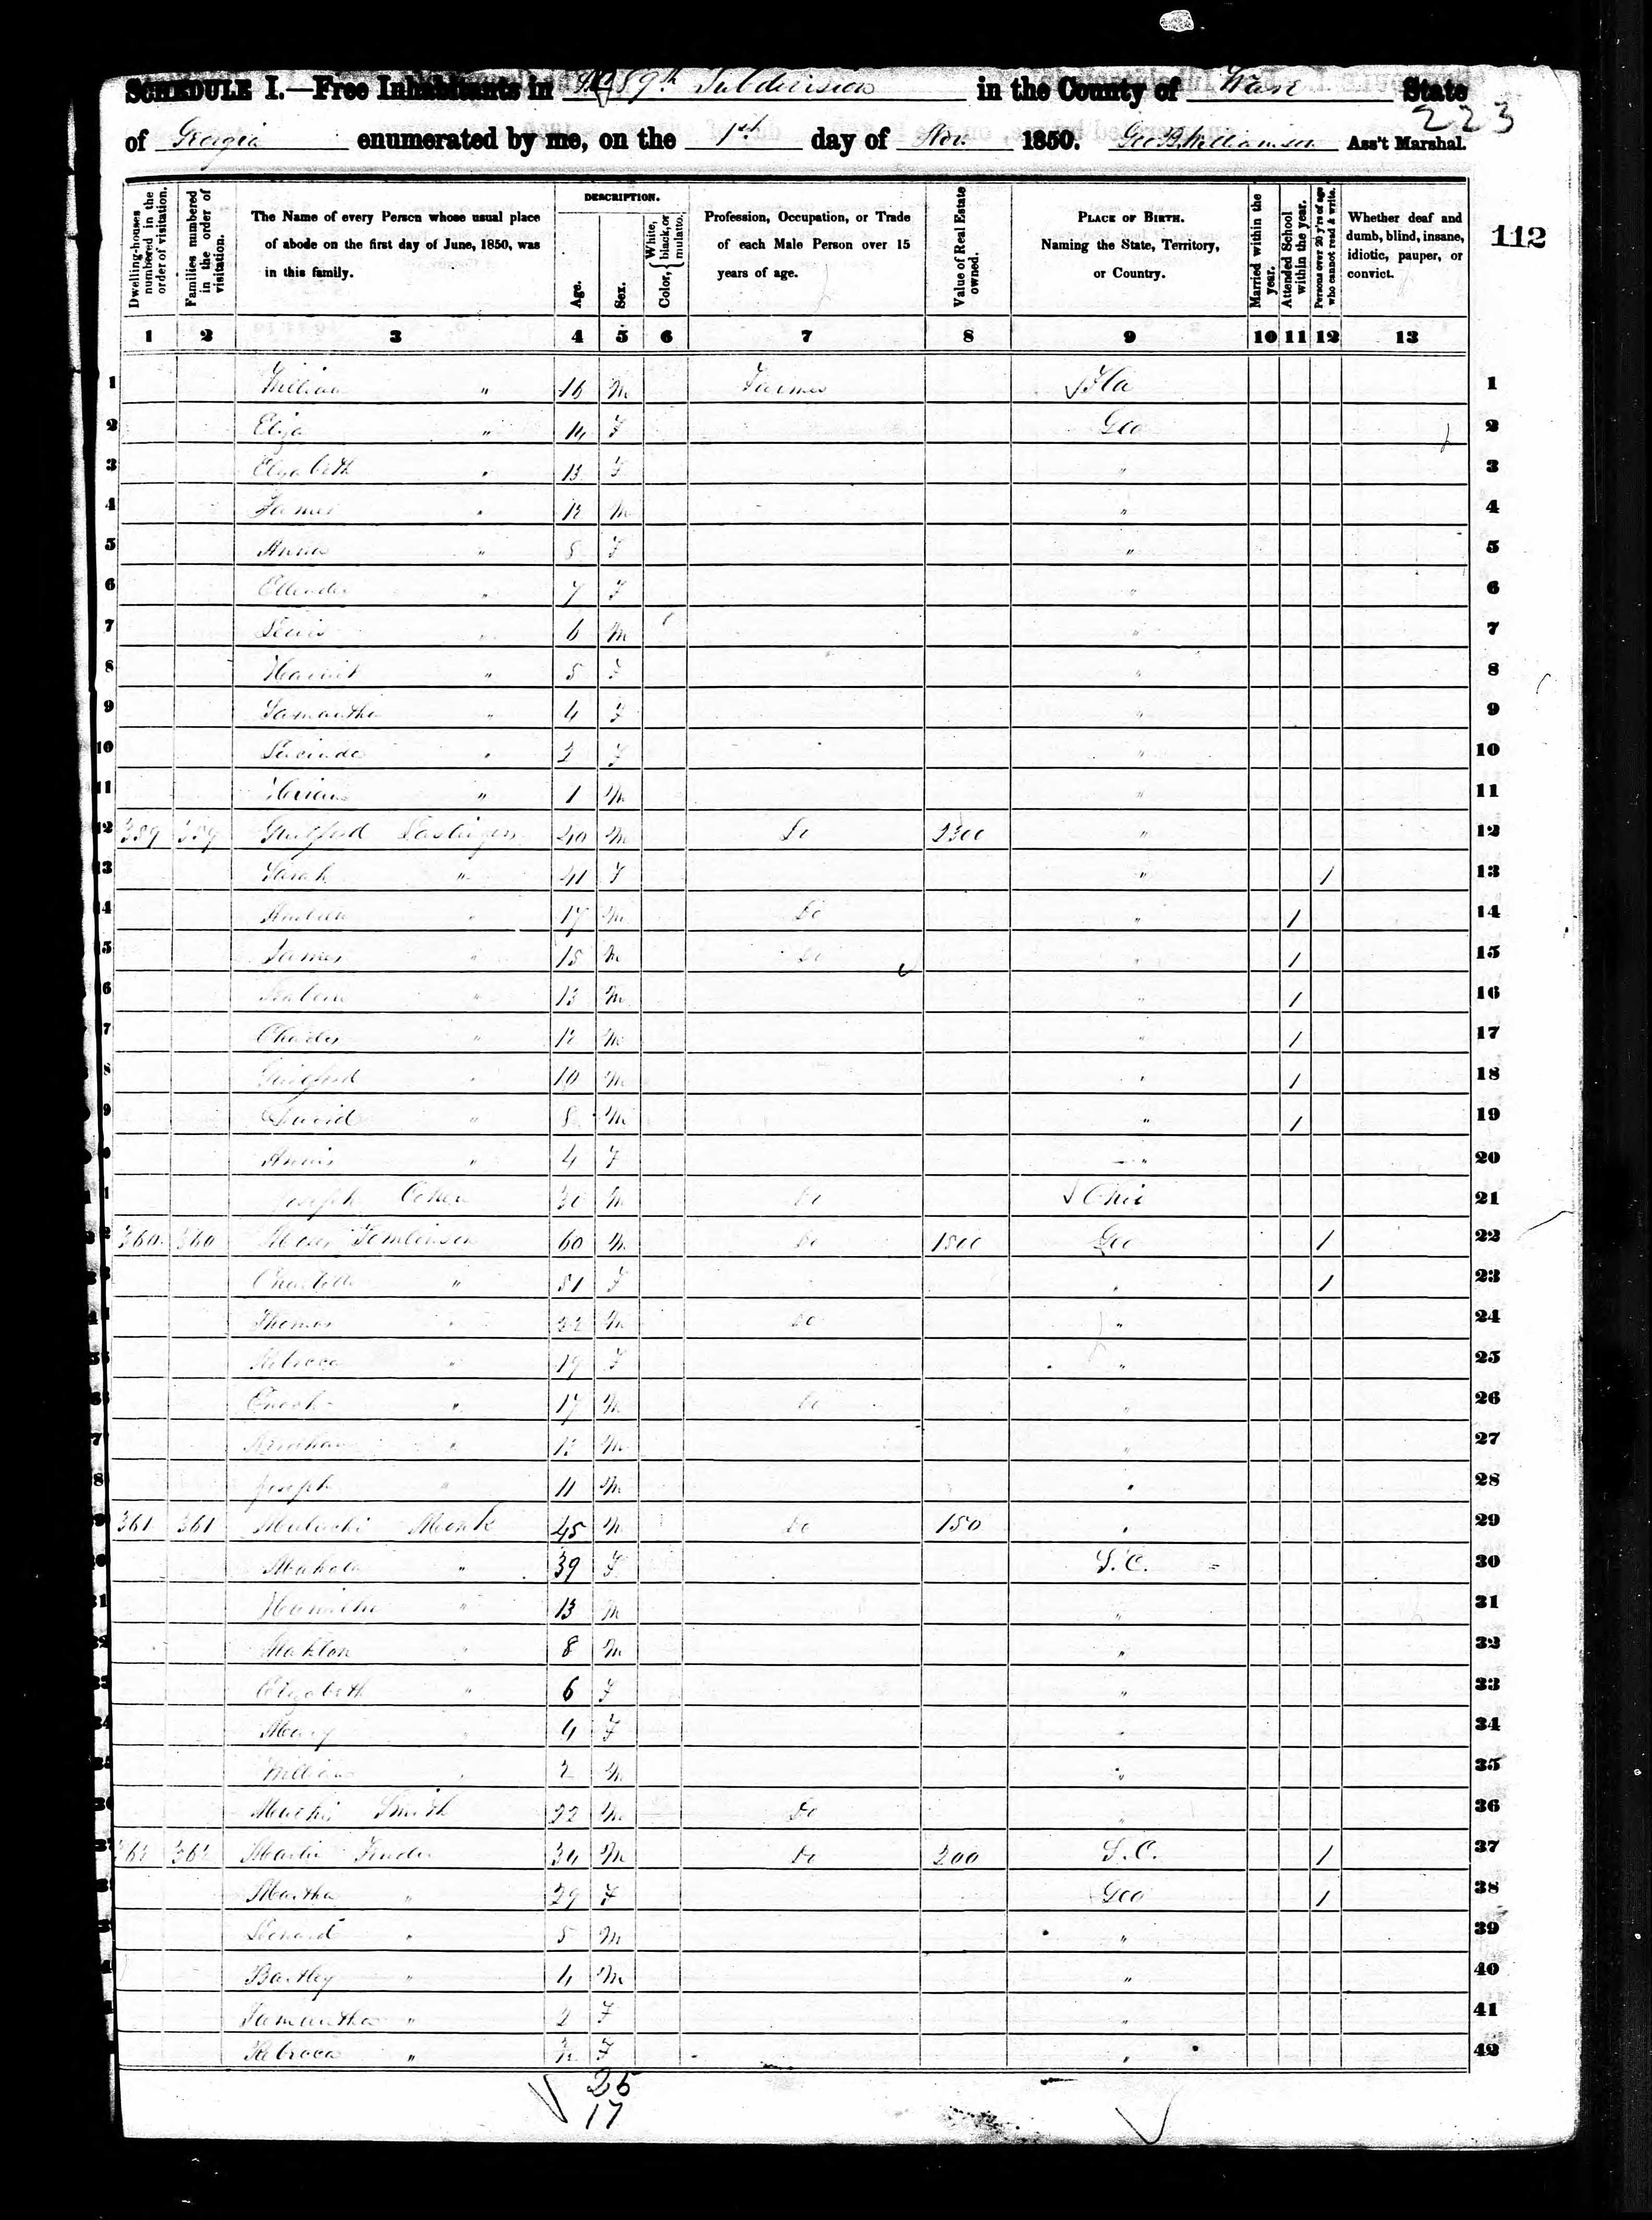 SCHEDULE I.—Free Inhabitants in 89th Subdivision in the County of Ware State
223
of Georgia enumerated by me, on the 1st day of Nov. 1850. Geo B Williamson Ass't Marshal.
112
Dwelling-houses numbered in the order of visitation.
Families numbered in the order of visitation.
The Name of every Person whose usual place of abode on the first day of June, 1850, was in this family.
DESCRIPTION.
Age.
Sex.
Color, { White, black, or mulatto.
Profession, Occupation, or Trade of each Male Person over 15 years of age.
Value of Real Estate owned.
PLACE OF BIRTH. Naming the State, Territory, or Country.
Married within the year.
Attended School within the year.
Persons over 20 y'rs of age who cannot read & write.
Whether deaf and dumb, blind, insane, idiotic, pauper, or convict.
1 2 3 4 5 6 7 8 9 10 11 12 13
1 William " 16 M Farmer Fla 1
2 Eliza " 14 F Geo 2
3 Elizabeth " 13 F " 3
4 James " 12 M " 4
5 Anna " 8 F " 5
6 Ellender " 7 F " 6
7 Lewis " 6 M " 7
8 Harriet " 5 F " 8
9 Samantha " 4 F " 9
10 Lucinda " F " 10
11 " 1 M " 11
12 359 359 Guilford Lastinger 40 M Do 2300 " 12
13 Sarah " 41 F " 1 13
14 " 17 M Do " 1 14
15 James " 15 M Do " 1 15
16 " 13 M " 1 16
17 Charles " 12 M " 1 17
18 Guilford " 10 M " 1 18
19 David " 8 M " 1 19
20 Annis " 4 F " 20
21 Joseph 30 M Do Ohio 21
22 360 360 Moses Tomlinson 60 M Do 1500 Geo 1 22
23 Charlotte " 51 F " 1 23
24 Thomas " 22 M Do " 24
25 Rebecca " 19 F " 25
26 Enoch " 17 M Do " 26
27 Abraham " 13 M " 27
28 Joseph " 11 M " 28
29 361 361 Malachi Monk 45 M Do 150 " 29
30 Mahala " 39 F S.C. 30
31 Hamilton " 13 M " 31
32 Mahlon " 8 M " 32
33 Elizabeth " 6 F " 33
34 Mary " 4 F " 34
35 William " 2 M " 35
36 Smith 22 M Do " 36
37 362 362 Martin 34 M Do 200 S.C. 1 37
38 Martha " 29 F Geo 1 38
39 Leonard " 5 M " 39
40 Bartley " 4 M " 40
41 Samantha " 2 F " 41
42 Rebecca " F " 42
25
17